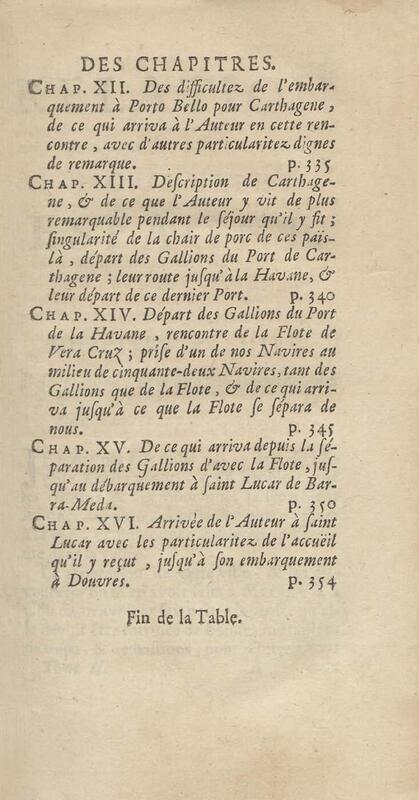 DES CHAPITRES.
CHAP. XII. Des difficultez de l'embar-
quement à Porto Bello pour Carthagene,
de ce qui arriva à l'Auteur en cette ren-
contre, avec d'autres particularitez dignes
de remarque. p. 335
CHAP. XIII. Description de Carthage-
ne, & de ce que l'Auteur y vit de plus
remarquable pendant le séjour qu'il y fit;
singularité de la chair de porc de ces païs-
là, départ des Gallions du Port de Car-
thagene; leur route jusqu'à la Havane, &
leur départ de ce dernier Port. p. 340
CHAP. XIV. Départ des Gallions du Port
de la Havane, rencontre de la Flote de
Vera Cruz; prise d'un de nos Navires au
milieu de cinquante-deux Navires, tant des
Gallions que de la Flote, & de ce qui arri-
va jusqu'à ce que la Flote se sépara de
nous. p. 345
CHAP. XV. De ce qui arriva depuis la sé-
paration des Gallions d'avec la Flote, jus-
qu'au débarquement à saint Lucar de Bar-
ra-Meda. p. 350
CHAP. XVI. Arrivée de l'Auteur à saint
Lucar avec les particularitez de l'accuëil
qu'il y reçut, jusqu'à son embarquement
à Douvres. p. 354
Fin de la Table.